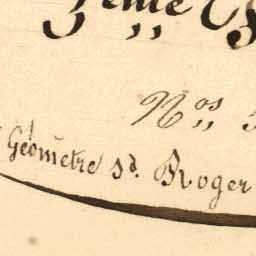 Nos
Géomètre sd. Roger